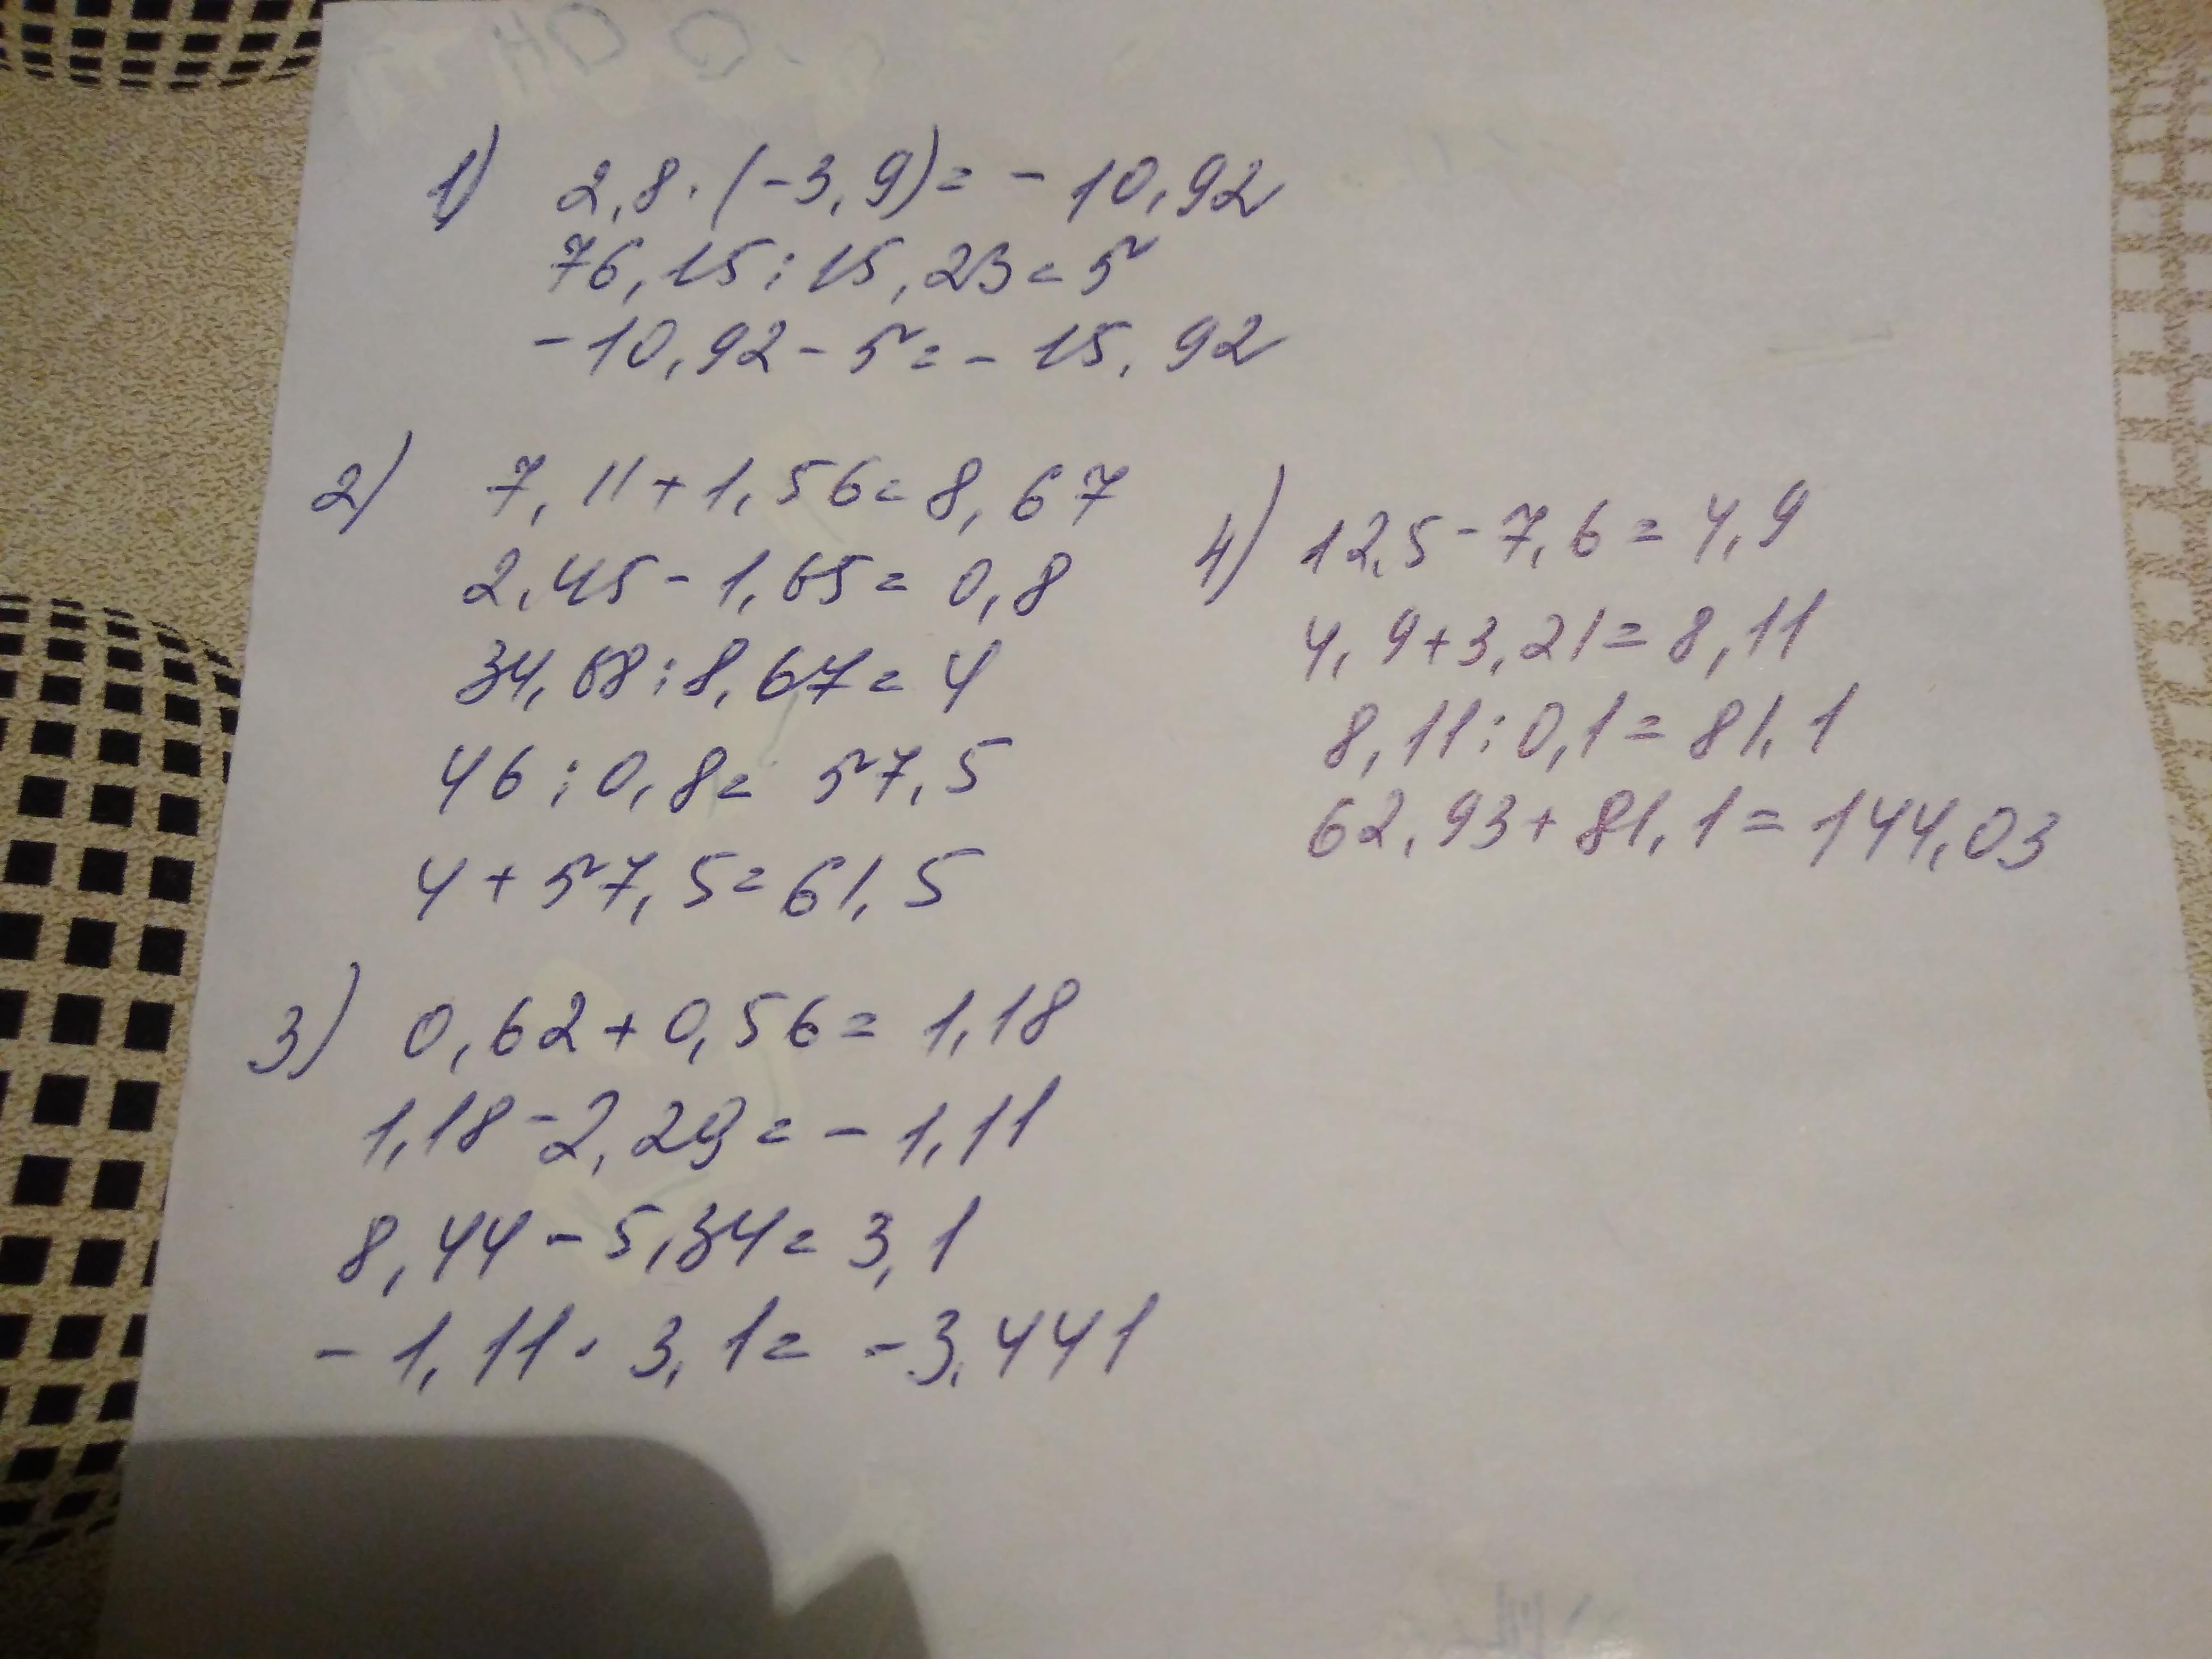 1) 2,8·(-3,9)=-10,92
76,15:15,23=5
-10,92-5=-15,92
2) 7,11+1,56=8,67
2,45-1,65=0,8
34,68:8,67=4
46:0,8=57,5
4+57,5=61,5
3) 0,62+0,56=1,18
1,18-2,29=-1,11
8,44-5,34=3,1
-1,11·3,1=-3,441
4) 12,5-7,6=4,9
4,9+3,21=8,11
8,11:0,1=81,1
62,93+81,1=144,03